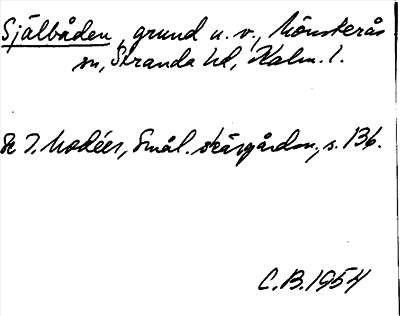 Själbåden, grund u. v., Mönsterås
sn, Stranda hd, Kalm. l.
Se I. Modéer, Smål. skärgårdsn., s. 136.
C.B. 1954